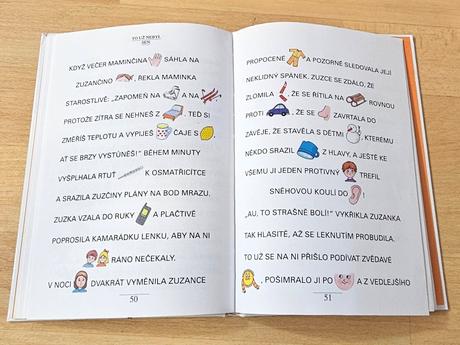 TO UŽ NEBYL
SEN
KDYŽ VEČER MAMINČINA SÁHLA NA
ZUZANČINO , ŘEKLA MAMINKA
STAROSTLIVĚ: „ZAPOMEŇ NA A NA
PROTOŽE ZÍTRA SE NEHNEŠ Z . TEĎ SI
ZMĚŘÍŠ TEPLOTU A VYPIJEŠ ČAJE S ,
AŤ SE BRZY VYSTŮNĚŠ!“ BĚHEM MINUTY
VYŠPLHALA RTUŤ K OSMATŘICÍTCE
A SRAZILA ZUZČINY PLÁNY NA BOD MRAZU.
ZUZKA VZALA DO RUKY A PLAČTIVĚ
POPROSILA KAMARÁDKU LENKU, ABY NA NI
RÁNO NEČEKALY.
V NOCI DVAKRÁT VYMĚNILA ZUZANCE
50
PROPOCENÉ A POZORNĚ SLEDOVALA JEJÍ
NEKLIDNÝ SPÁNEK. ZUZCE SE ZDÁLO, ŽE
ZLOMILA , ŽE SE ŘÍTILA NA ROVNOU
PROTI , ŽE SE ZAVRTALA DO
ZÁVĚJE, ŽE STAVĚLA S DĚTMI , KTERÉMU
NĚKDO SRAZIL Z HLAVY, A JEŠTĚ KE
VŠEMU JI JEDEN PROTIVNÝ TREFIL
SNĚHOVOU KOULÍ DO !
„AU, TO STRAŠNĚ BOLÍ!“ VYKŘIKLA ZUZANKA
TAK HLASITĚ, AŽ SE LEKNUTÍM PROBUDILA.
TO UŽ SE NA NI PŘIŠLO PODÍVAT ZVĚDAVÉ
, POŠIMRALO JI PO A Z VEDLEJŠÍHO
51